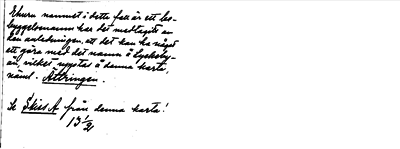 Ehuru namnet i detta fall är ett be-
byggelsenamn har det medtagits av
den anledningen, att det kan ha något
att göra med det namn å Lyckeby-
ån, vilket upptas å denna karta,
näml. Ättringen.
Se Skiss A från denna karta!
13 1/2